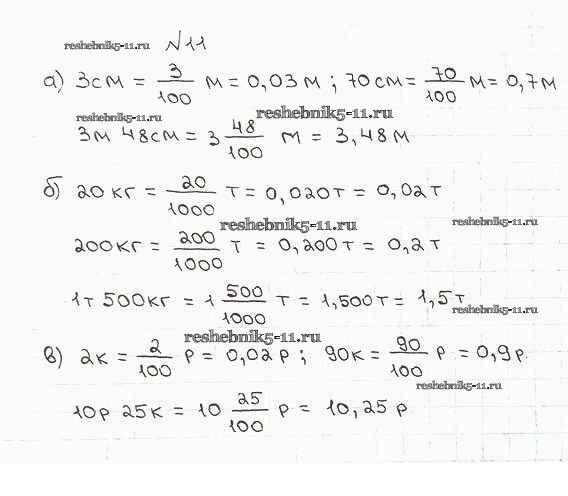 reshebnik5-11.ru №11
а) 3см = 3/100 м = 0,03 м ; 70 см = 70/100 м = 0,7 м
reshebnik5-11.ru reshebnik5-11.ru
3м 48см = 3 48/100 м = 3,48 м
б) 20 кг = 20/1000 т = 0,020 т = 0,02 т
reshebnik5-11.ru reshebnik5-11.ru
200 кг = 200/1000 т = 0,200 т = 0,2 т
1т 500кг = 1 500/1000 т = 1,500 т = 1,5 т
reshebnik5-11.ru
reshebnik5-11.ru
в) 2к = 2/100 р = 0,02 р ; 90к = 90/100 р = 0,9 р
reshebnik5-11.ru
10р 25к = 10 25/100 р = 10,25 р